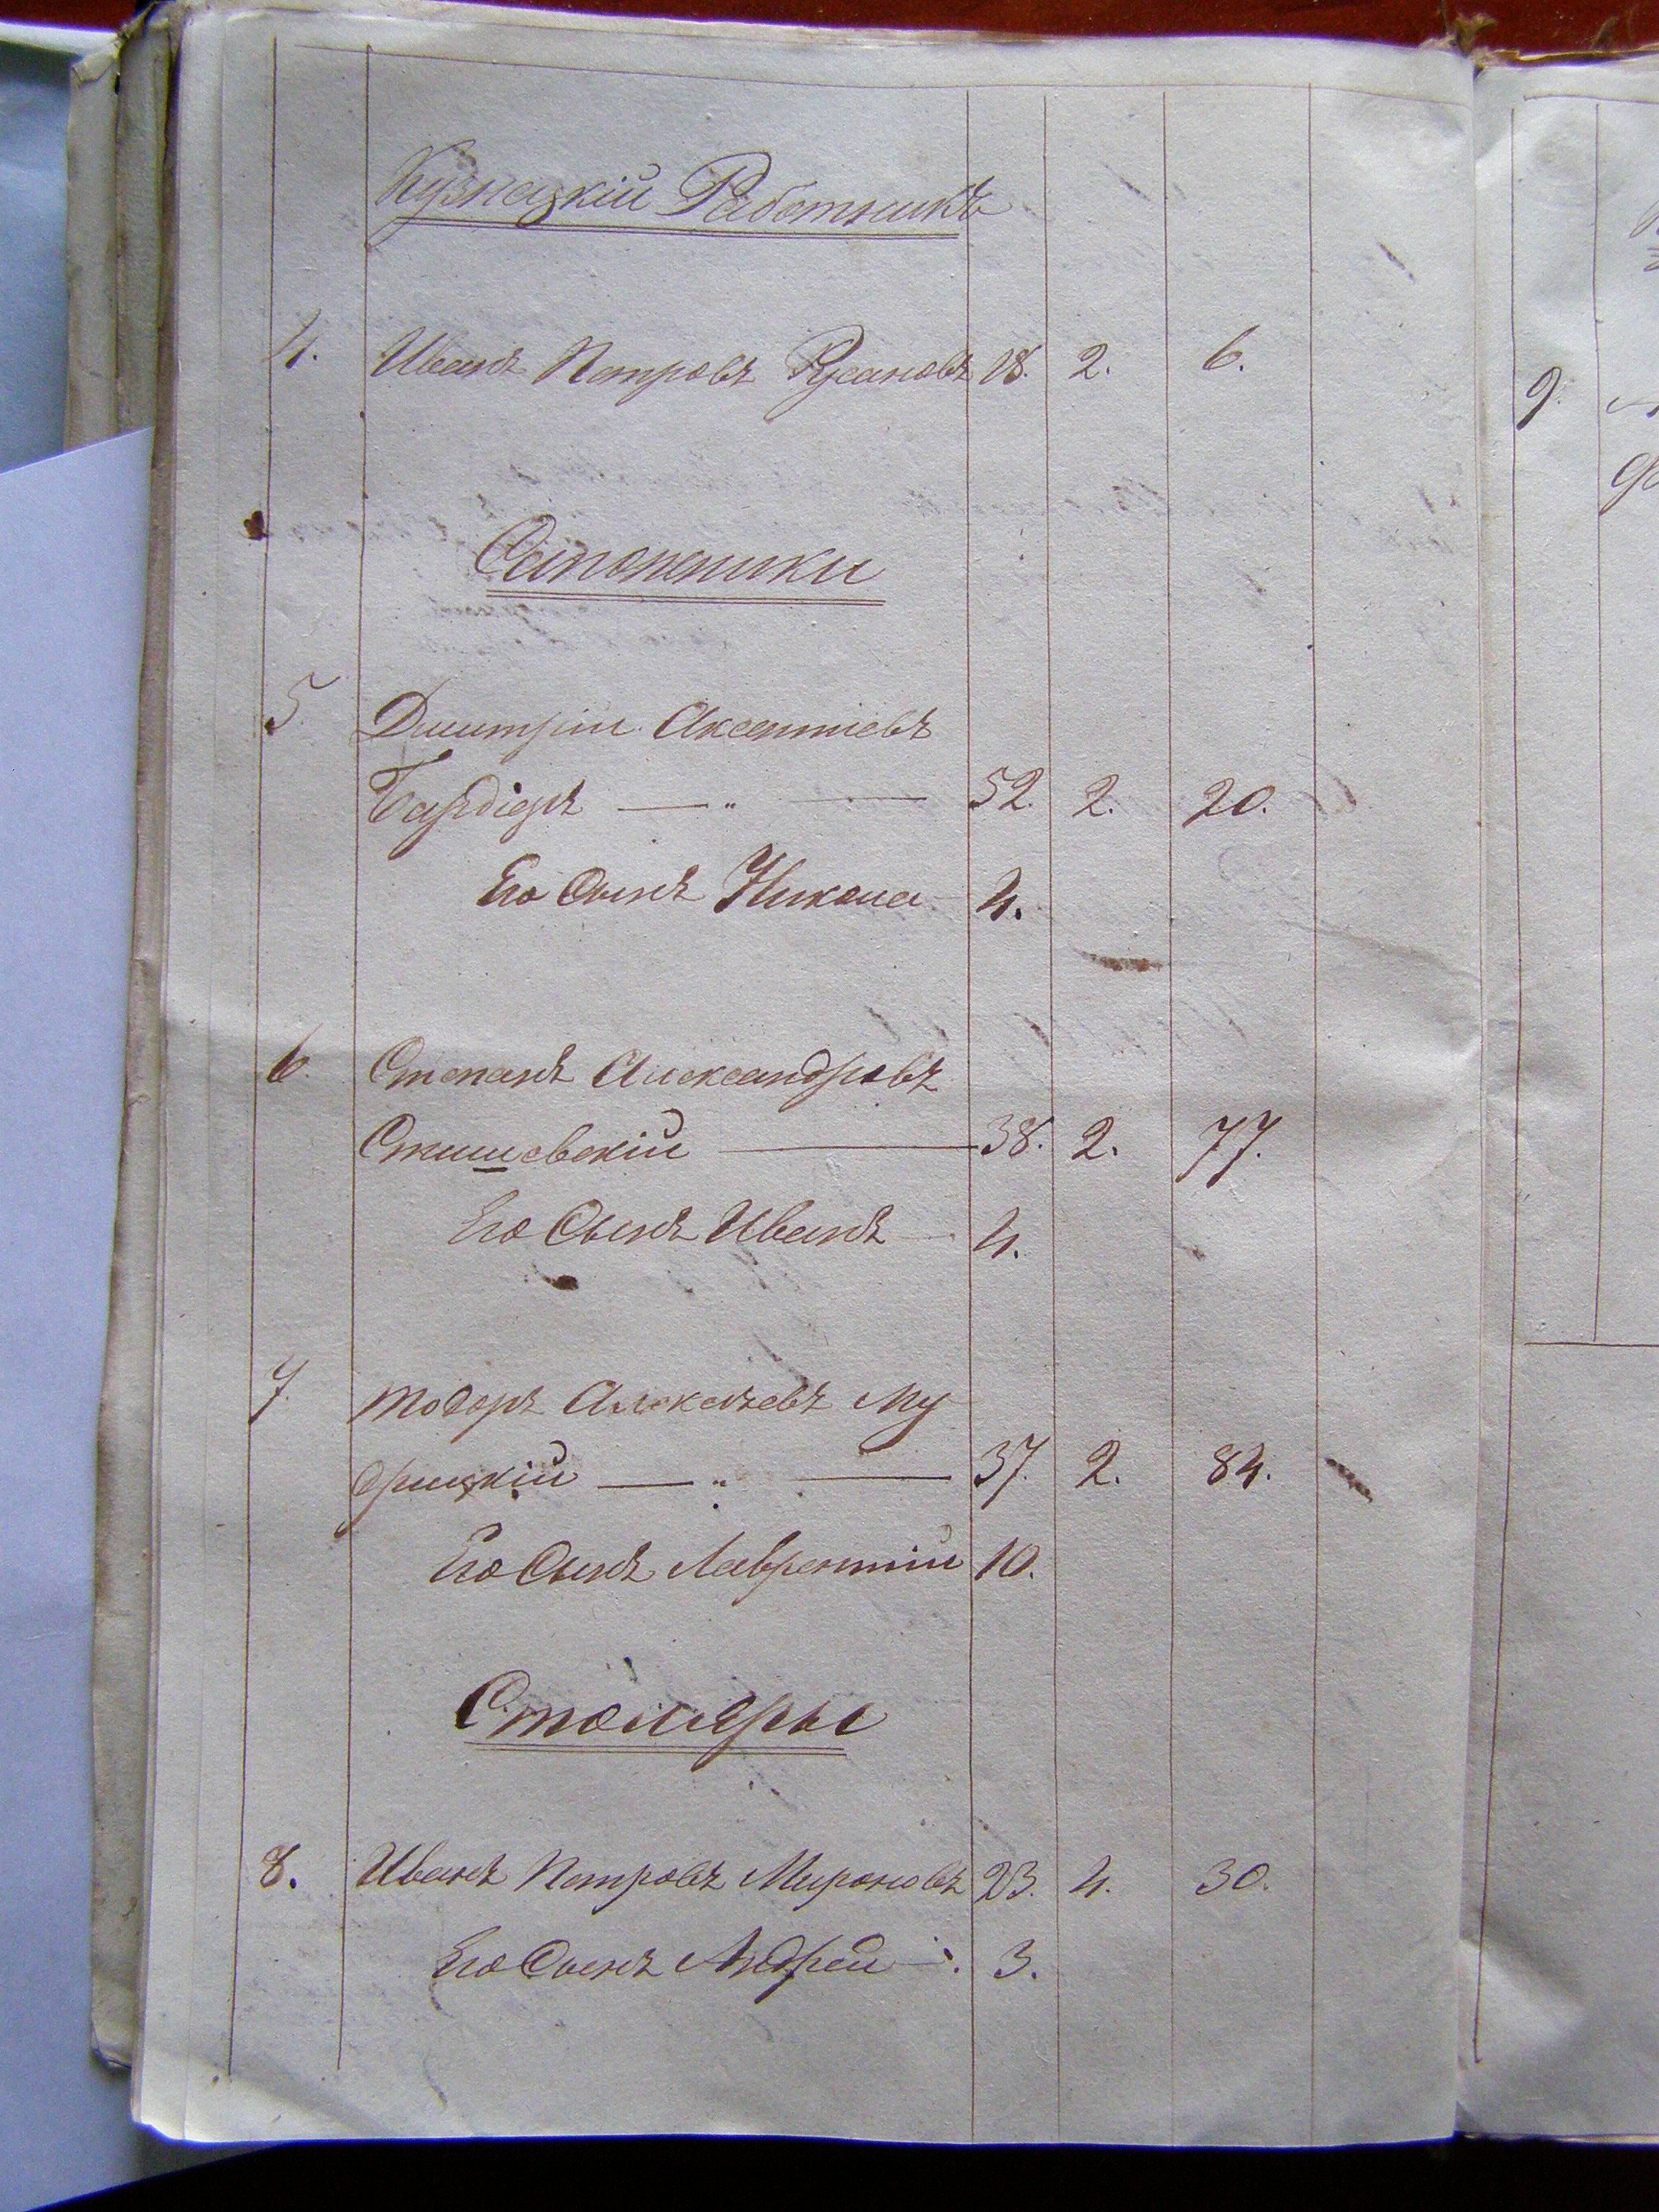 Кузнецкій Работникъ
4. Иванъ Петровъ Русановъ 18. 2. 6.
Сапожники
5. Дмитрій Аксентіевъ
Барбіеръ — „ — 52. 2. 20.
Его Сынъ Никола 4.
6. Степанъ Александровъ
38. 2. 77.
Его Сынъ Иванъ — 4.
7. Тодоръ Алексѣевъ Му
дрицкій — „ — 37. 2. 84.
Его Сынъ Лаврентій 10.
Столяры
8. Иванъ Петровъ Мироновъ 23. 4. 30.
Его Сынъ Андрей — 3.
9.